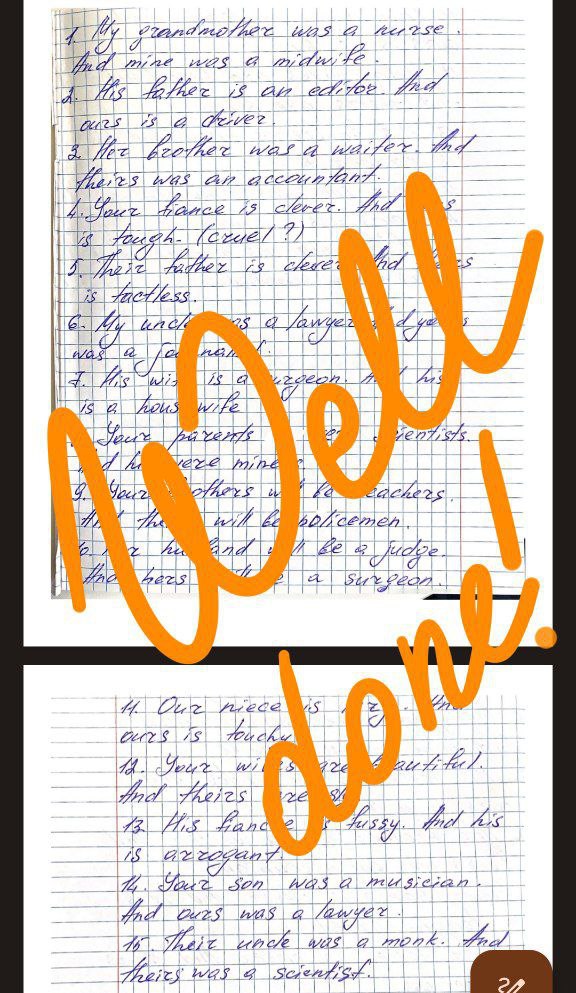 1. My grandmother was a nurse.
And mine was a midwife.
2. His father is an editor. And
ours is a driver.
3. Her brother was a waiter. And
theirs was an accountant.
4. Your fiance is clever. And
is tough. (cruel?)
5. Their father is clever. And
is tactless.
6. My uncle was a lawyer. And yours
was a journalist.
7. His wife is a surgeon. And his
is a housewife
Your parents were scientists.
And his were miners.
9. Your brothers will be teachers.
And will be policemen.
10. Her husband will be a judge.
And hers will be a surgeon.
Well
done!
11. Our niece is And
ours is touchy
12. Your wives are beautiful.
And theirs are
13. His is fussy. And his
is arrogant
14. Your son was a musician.
And ours was a lawyer.
15. Their uncle was a monk. And
theirs was a scientist.